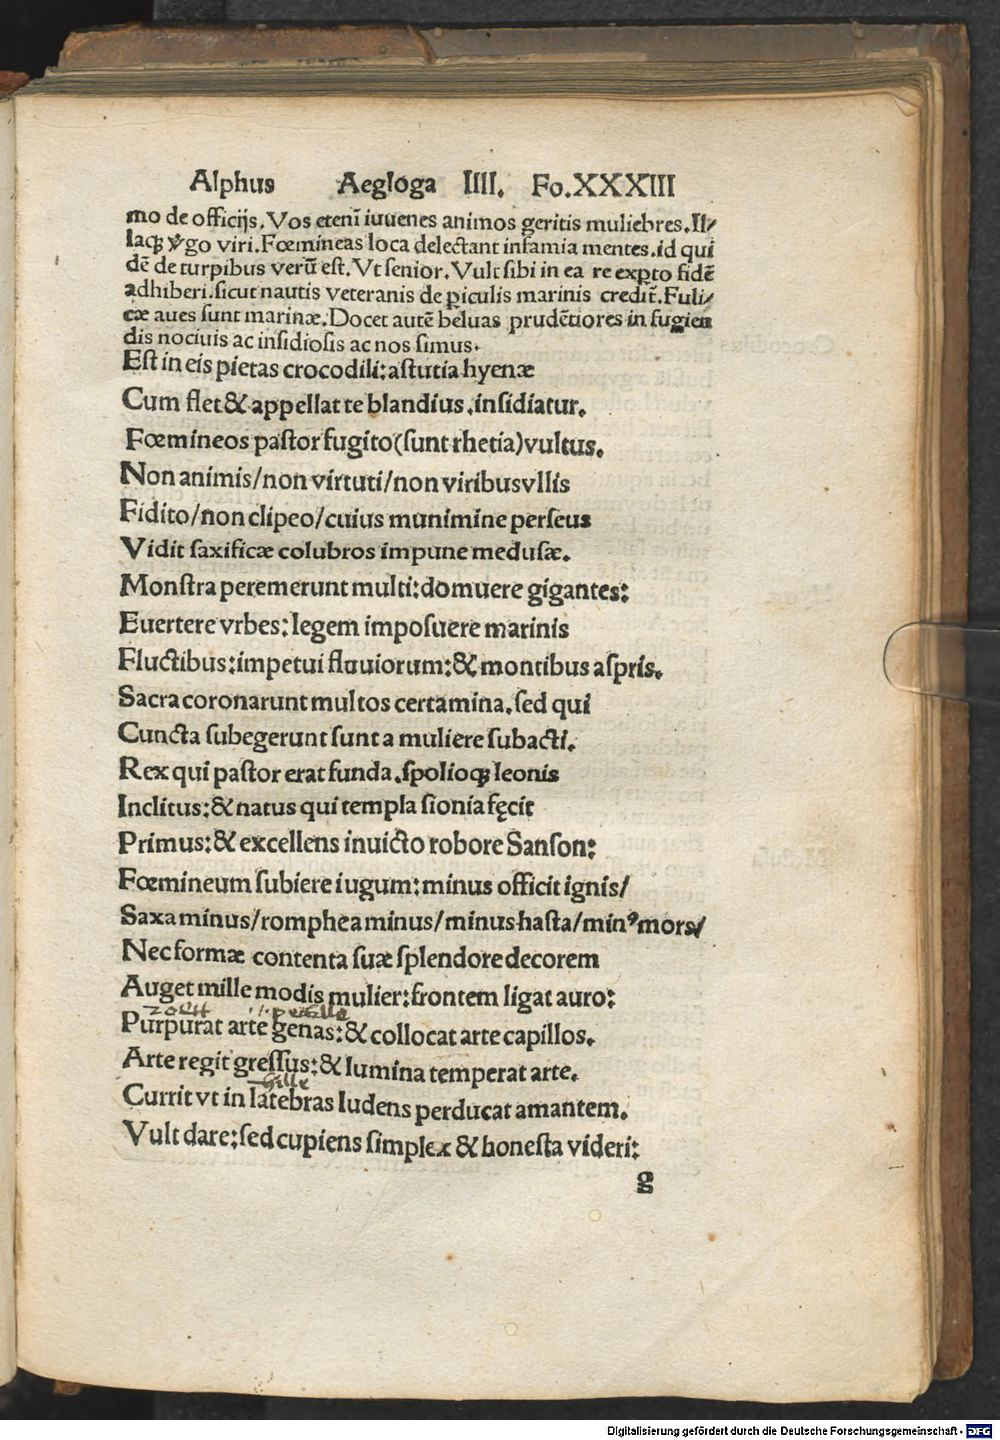 Alphus Aegloga IIII. Fo.XXXIII
mo de officijs. Vos etenī iuuenes animos geritis muliebres. Il/
laqꝫ v̄go viri. Fœmineas loca delectant infamia mentes. id qui
dē de turpibus verū est. Vt senior. Vult sibi in ea re expto fidē
adhiberi. sicut nautis veteranis de piculis marinis credit̄. Fuli/
cæ aues sunt marinæ. Docet autē beluas prudētiores in fugien
dis nociuis ac insidiosis ac nos simus.
Est in eis pietas crocodili: astutia hyenæ
Cum flet & appellat te blandius, insidiatur.
Fœmineos pastor fugito (sunt rhetia) vultus.
Non animis/non virtuti/non viribus vllis
Fidito/non clipeo/cuius munimine perseus
Vidit saxificæ colubros impune medusæ.
Monstra peremerunt multi: domuere gigantes:
Euertere vrbes: legem imposuere marinis
Fluctibus: impetui fluuiorum: & montibus aspris.
Sacra coronarunt multos certamina. sed qui
Cuncta subegerunt sunt a muliere subacti.
Rex qui pastor erat funda. spolioqꝫ leonis
Inclitus: & natus qui templa sionia fęcit
Primus: & excellens inuicto robore Sanson:
Fœmineum subiere iugum: minus officit ignis/
Saxa minus/romphea minus/minus hasta/minꝰ mors/
Nec formæ contenta suæ splendore decorem
Auget mille modis mulier: frontem ligat auro:
Purpurat arte genas: & collocat arte capillos.
Arte regit gressus: & lumina temperat arte.
Currit vt in latebras ludens perducat amantem.
Vult dare: sed cupiens simplex & honesta videri:
g
Digitalisierung gefördert durch die Deutsche Forschungsgemeinschaft - DFG